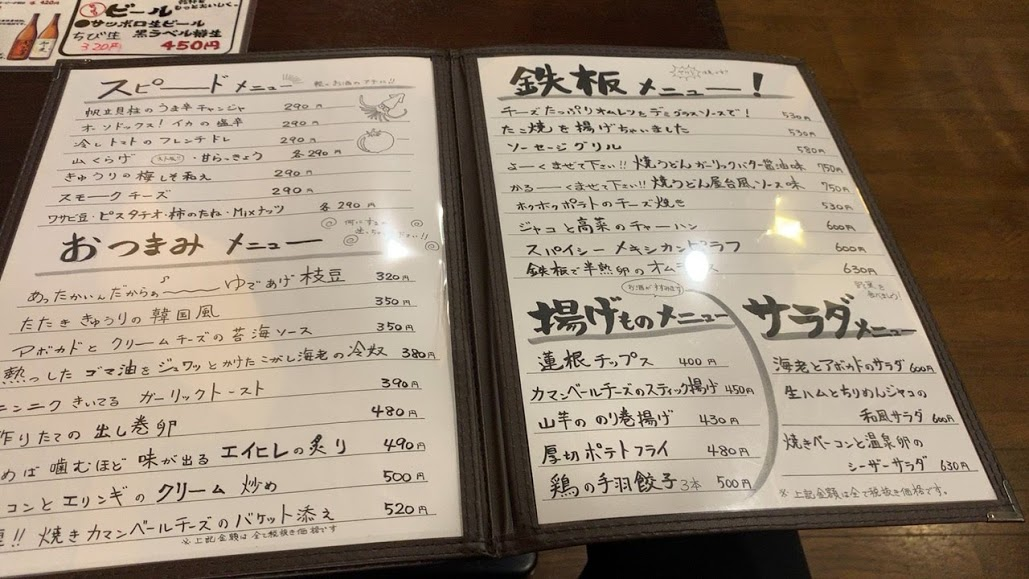 ビール
●サッポロ生ビール
ちび生 黒ラベル樽生
320円 450円
スピードメニュー
帆立貝柱のうま辛チャンジャ 290円
オーソドックス!イカの塩辛 290円
冷しトマトのフレンチドレ 290円
山くらげ ・甘らっきょう 各290円
きゅうりの梅しそ和え 290円
スモークチーズ 290円
ワサビ豆・ピスタチオ・柿のたね・Mixナッツ 各290円
おつまみメニュー
あったかいんだからぁ〜 ゆであげ枝豆 320円
たたききゅうりの韓国風 350円
アボカドとクリームチーズの苔海ソース 350円
熱っしたゴマ油をジュワッとかけたこがし海老の冷奴 380円
ニンニクきいてるガーリックトースト 390円
作りたての出し巻卵 480円
めば噛むほど味が出るエイヒレの炙り 490円
コンとエリンギのクリーム炒め 500円
!!焼きカマンベールチーズのバケット添え 520円
※上記金額は全て税抜き価格です
鉄板メニュー!
チーズたっぷりオムレツをデミグラスソースで! 530円
たこ焼を揚げちゃいました 530円
ソーセージグリル 580円
よーくまぜて下さい!!焼うどんガーリックバター醤油味 750円
かるーくまぜて下さい!!焼うどん屋台風ソース味 750円
ホクホクポテトのチーズ焼き 530円
ジャコと高菜のチャーハン 600円
スパイシーメキシカンドラフ 600円
鉄板で半熟卵のオムライス 630円
お酒がすすみそう
揚げものメニュー
蓮根チップス 400円
カマンベールチーズのスティック揚げ 450円
山芋ののり巻揚げ 430円
厚切ポテトフライ 480円
鶏の手羽餃子3本 500円
サラダメニュー
海老とアボカドのサラダ 600円
生ハムとちりめんジャコの
和風サラダ 600円
焼きベーコンと温泉卵の
シーザーサラダ 630円
※上記金額は全て税抜き価格です。